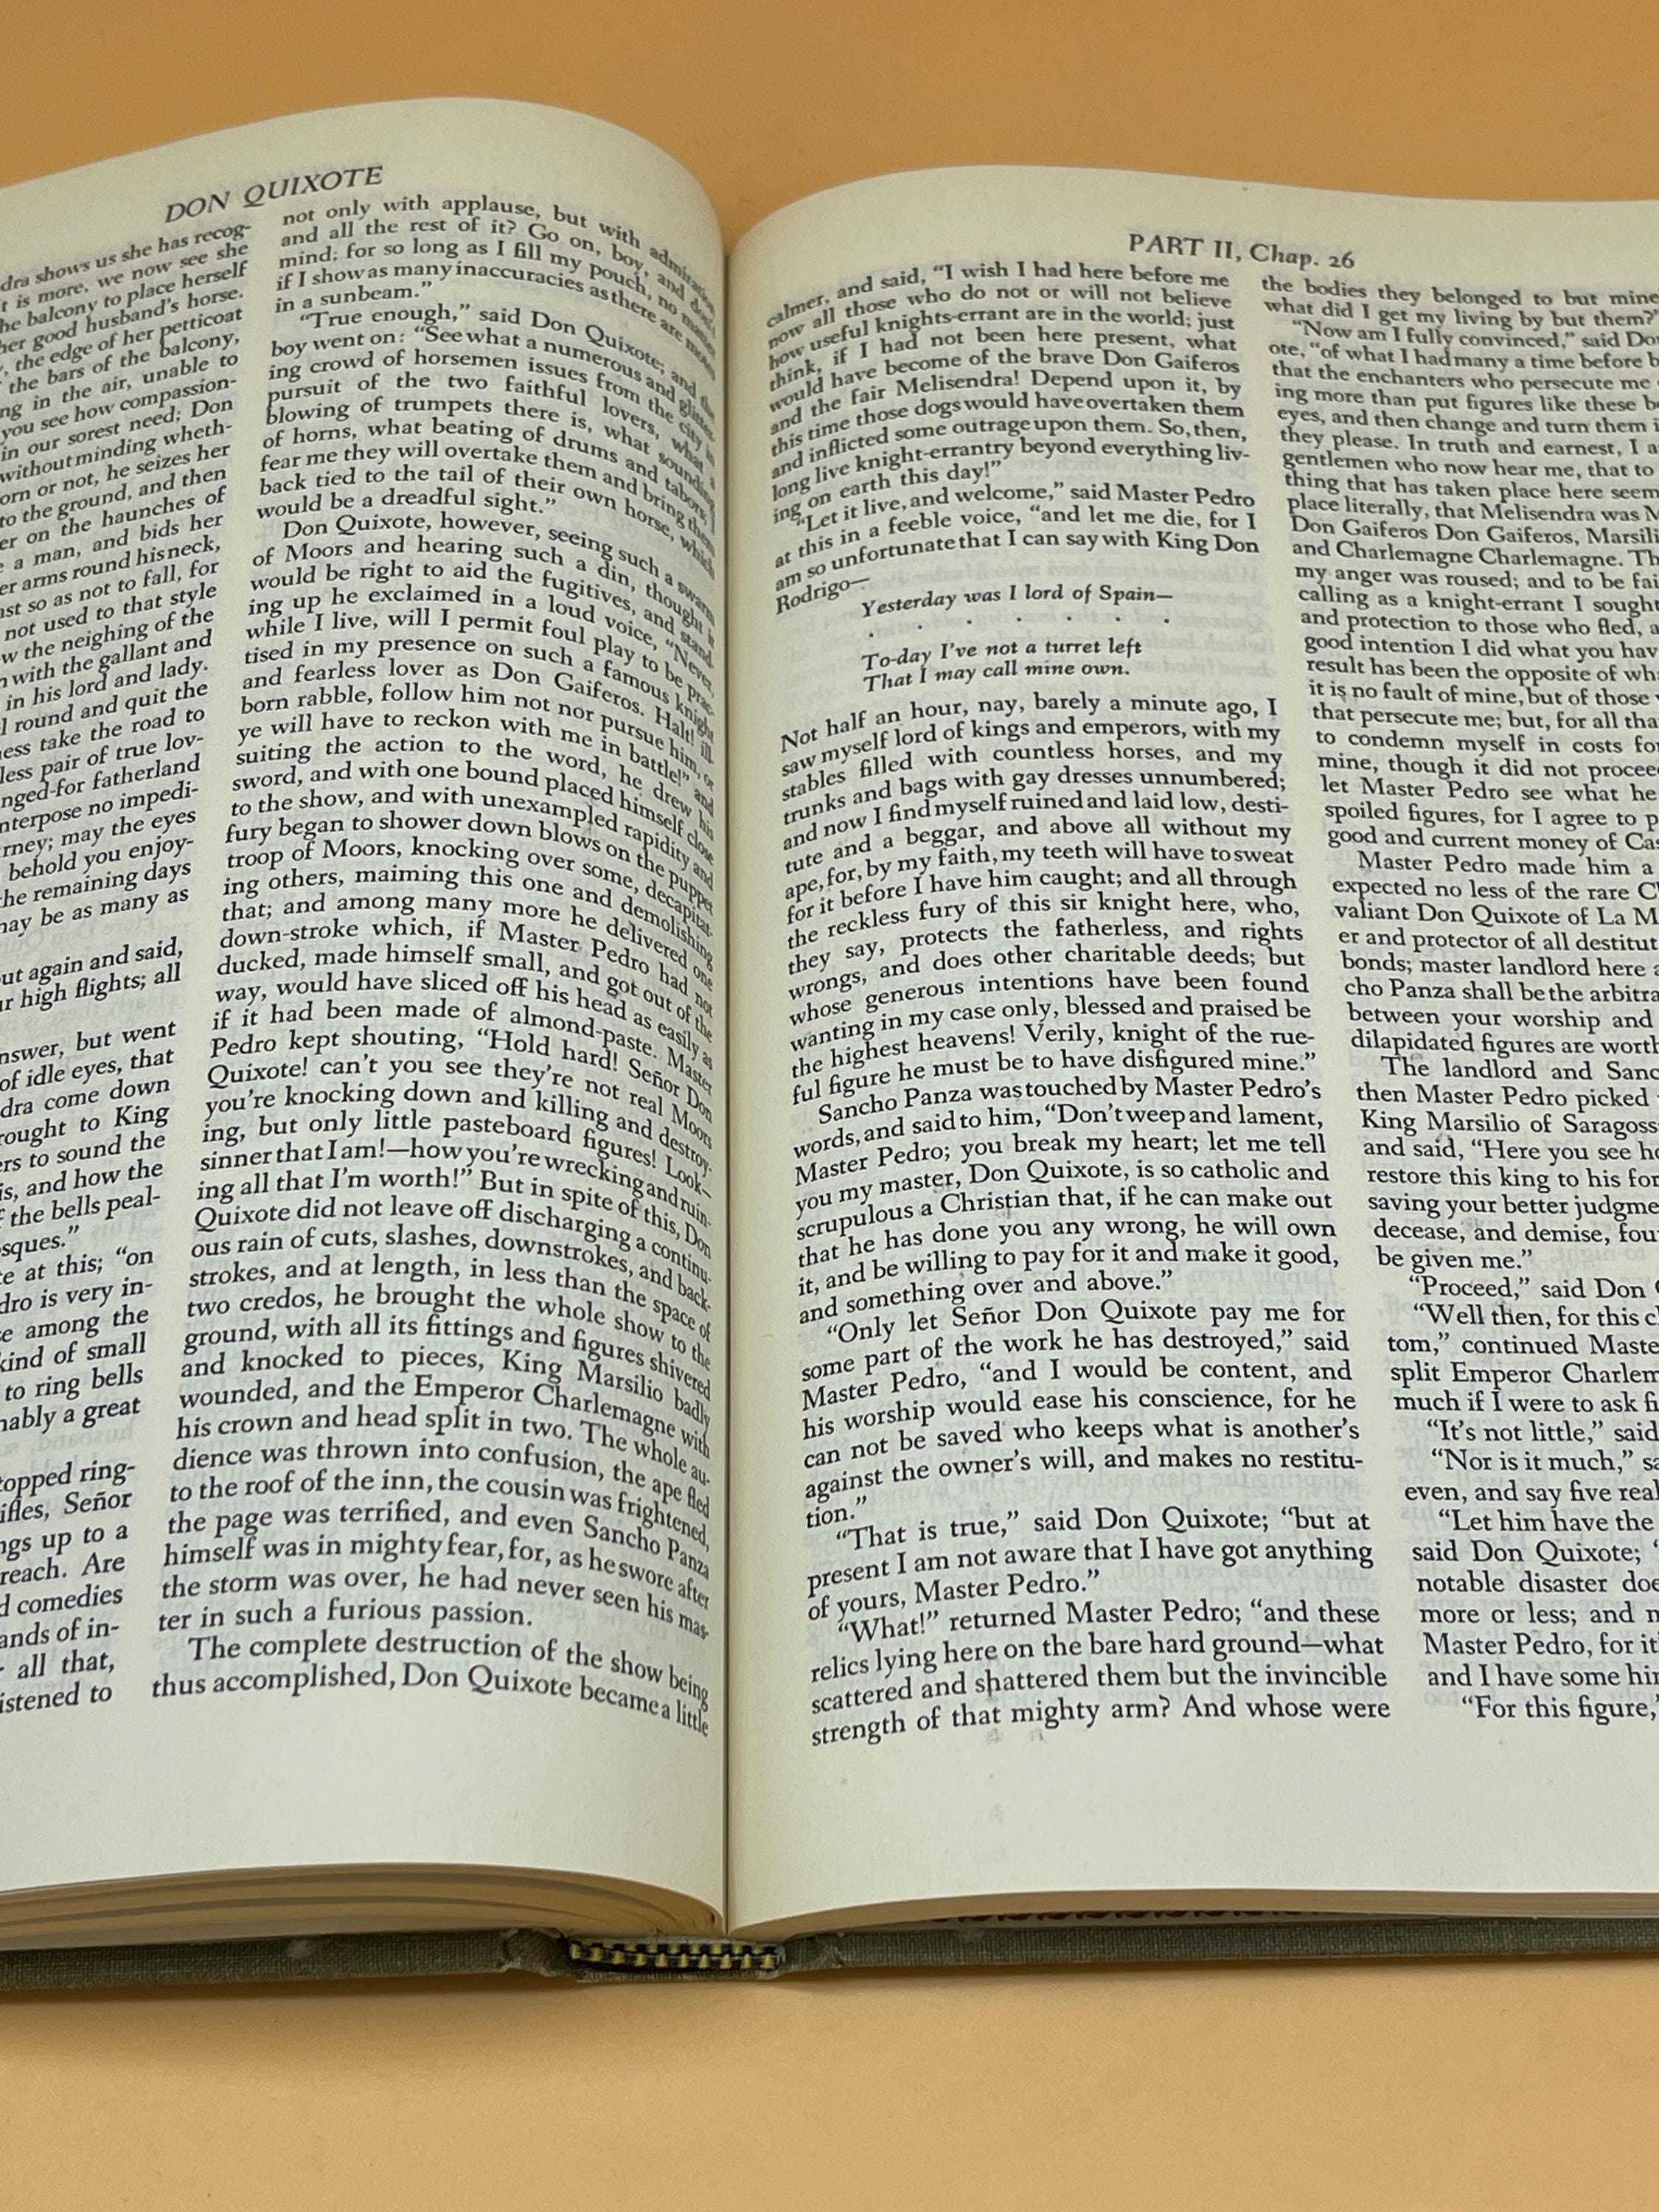 DON QUIXOTE
dra shows us she has recog-
t is more, we now see she
he balcony to place herself
her good husband's horse.
, the edge of her petticoat
the bars of the balcony,
ng in the air, unable to
you see how compassion-
in our sorest need; Don
without minding wheth-
orn or not, he seizes her
to the ground, and then
er on the haunches of
a man, and bids her
er arms round his neck,
ast so as not to fall, for
not used to that style
w the neighing of the
with the gallant and
in his lord and lady.
l round and quit the
ess take the road to
less pair of true lov-
nged-for fatherland
nterpose no impedi-
rney; may the eyes
behold you enjoy-
he remaining days
may be as many as
out again and said,
ur high flights; all
nswer, but went
of idle eyes, that
dra come down
rought to King
ers to sound the
is, and how the
f the bells peal-
sques."
te at this; "on
dro is very in-
se among the
kind of small
to ring bells
nably a great
topped ring-
ifles, Señor
ngs up to a
reach. Are
d comedies
ands of in-
r all that,
istened to
not only with applause, but with admiration
and all the rest of it? Go on, boy, and don't
mind; for so long as I fill my pouch, no matter
if I show as many inaccuracies as there are motes
in a sunbeam."
"True enough," said Don Quixote; and the
boy went on: "See what a numerous and glitter-
ing crowd of horsemen issues from the city in
pursuit of the two faithful lovers, what a
blowing of trumpets there is, what sounding
of horns, what beating of drums and tabors; I
fear me they will overtake them and bring them
back tied to the tail of their own horse, which
would be a dreadful sight."
Don Quixote, however, seeing such a swarm
of Moors and hearing such a din, thought it
would be right to aid the fugitives, and stand-
ing up he exclaimed in a loud voice, "Never,
while I live, will I permit foul play to be prac-
tised in my presence on such a famous knight
and fearless lover as Don Gaiferos. Halt! ill-
born rabble, follow him not nor pursue him, or
ye will have to reckon with me in battle!" and
suiting the action to the word, he drew his
sword, and with one bound placed himself close
to the show, and with unexampled rapidity and
fury began to shower down blows on the puppet
troop of Moors, knocking over some, decapitat-
ing others, maiming this one and demolishing
that; and among many more he delivered one
down-stroke which, if Master Pedro had not
ducked, made himself small, and got out of the
way, would have sliced off his head as easily as
if it had been made of almond-paste. Master
Pedro kept shouting, "Hold hard! Señor Don
Quixote! can't you see they're not real Moors
you're knocking down and killing and destroy-
ing, but only little pasteboard figures! Look—
sinner that I am!—how you're wrecking and ruin-
ing all that I'm worth!" But in spite of this, Don
Quixote did not leave off discharging a continu-
ous rain of cuts, slashes, downstrokes, and back-
strokes, and at length, in less than the space of
two credos, he brought the whole show to the
ground, with all its fittings and figures shivered
and knocked to pieces, King Marsilio badly
wounded, and the Emperor Charlemagne with
his crown and head split in two. The whole au-
dience was thrown into confusion, the ape fled
to the roof of the inn, the cousin was frightened,
the page was terrified, and even Sancho Panza
himself was in mighty fear, for, as he swore after
the storm was over, he had never seen his mas-
ter in such a furious passion.
The complete destruction of the show being
thus accomplished, Don Quixote became a little
PART II, Chap. 26
calmer, and said, "I wish I had here before me
now all those who do not or will not believe
how useful knights-errant are in the world; just
think, if I had not been here present, what
would have become of the brave Don Gaiferos
and the fair Melisendra! Depend upon it, by
this time those dogs would have overtaken them
and inflicted some outrage upon them. So, then,
long live knight-errantry beyond everything liv-
ing on earth this day!"
"Let it live, and welcome," said Master Pedro
at this in a feeble voice, "and let me die, for I
am so unfortunate that I can say with King Don
Rodrigo—
Yesterday was I lord of Spain—
. . . . . . .
To-day I've not a turret left
That I may call mine own.
Not half an hour, nay, barely a minute ago, I
saw myself lord of kings and emperors, with my
stables filled with countless horses, and my
trunks and bags with gay dresses unnumbered;
and now I find myself ruined and laid low, desti-
tute and a beggar, and above all without my
ape, for, by my faith, my teeth will have to sweat
for it before I have him caught; and all through
the reckless fury of this sir knight here, who,
they say, protects the fatherless, and rights
wrongs, and does other charitable deeds; but
whose generous intentions have been found
wanting in my case only, blessed and praised be
the highest heavens! Verily, knight of the rue-
ful figure he must be to have disfigured mine."
Sancho Panza was touched by Master Pedro's
words, and said to him, "Don't weep and lament,
Master Pedro; you break my heart; let me tell
you my master, Don Quixote, is so catholic and
scrupulous a Christian that, if he can make out
that he has done you any wrong, he will own
it, and be willing to pay for it and make it good,
and something over and above."
"Only let Señor Don Quixote pay me for
some part of the work he has destroyed," said
Master Pedro, "and I would be content, and
his worship would ease his conscience, for he
can not be saved who keeps what is another's
against the owner's will, and makes no restitu-
tion."
"That is true," said Don Quixote; "but at
present I am not aware that I have got anything
of yours, Master Pedro."
"What!" returned Master Pedro; "and these
relics lying here on the bare hard ground—what
scattered and shattered them but the invincible
strength of that mighty arm? And whose were
the bodies they belonged to but mine
what did I get my living by but them?"
"Now am I fully convinced," said Do
ote, "of what I had many a time before b
that the enchanters who persecute me
ing more than put figures like these b
eyes, and then change and turn them i
they please. In truth and earnest, I a
gentlemen who now hear me, that to
thing that has taken place here seem
place literally, that Melisendra was M
Don Gaiferos Don Gaiferos, Marsili
and Charlemagne Charlemagne. Th
my anger was roused; and to be fai
calling as a knight-errant I sought
and protection to those who fled, a
good intention I did what you hav
result has been the opposite of wha
it is no fault of mine, but of those
that persecute me; but, for all tha
to condemn myself in costs for
mine, though it did not procee
let Master Pedro see what he
spoiled figures, for I agree to p
good and current money of Cas
Master Pedro made him a
expected no less of the rare C
valiant Don Quixote of La M
er and protector of all destitut
bonds; master landlord here a
cho Panza shall be the arbitra
between your worship and
dilapidated figures are worth
The landlord and Sanc
then Master Pedro picked
King Marsilio of Saragoss
and said, "Here you see ho
restore this king to his for
saving your better judgme
decease, and demise, fou
be given me."
"Proceed," said Don
"Well then, for this cl
tom," continued Maste
split Emperor Charlem
much if I were to ask fi
"It's not little," said
"Nor is it much," sa
even, and say five real
"Let him have the
said Don Quixote; "
notable disaster doe
more or less; and m
Master Pedro, for it
and I have some hin
"For this figure,"